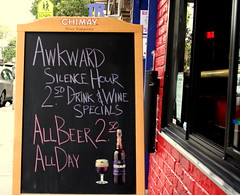 CHIMAY
AWKWARD
SILENCE HOUR
2.50 DRINK & WINE
SPECIALS
ALL BEER 2.50
ALL DAY